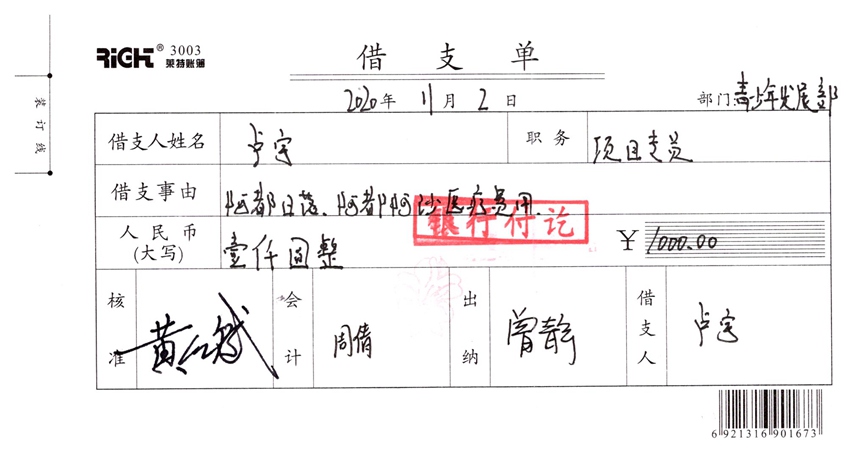 RiGHT® 3003
莱特账簿
借支单
2020年 11月 2日
部门:青少年发展部
装订线
借支人姓名 卢宇 职务 项目专员
借支事由 阿都日落、阿都阿沙医疗费用.
银行付讫
人民币(大写) 壹仟圆整 ¥ 1000.00
核准 会计 周倩 出纳 曾静 借支人 卢宇
6 921316 901673